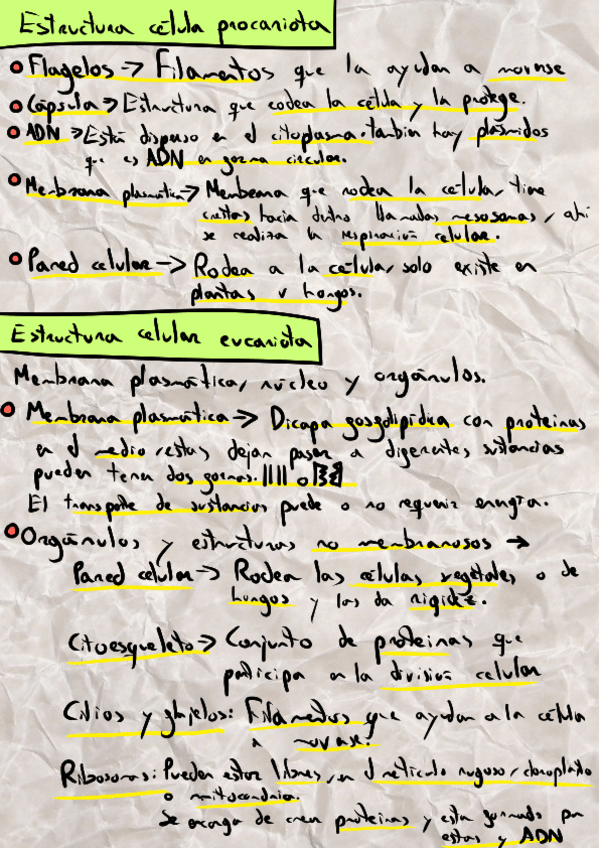 Estructura célula procariota
Flagelos → Filamentos que la ayudan a moverse
Cápsula → Estructura que rodea la célula y la protege.
ADN → Está disperso en el citoplasma, también hay plásmidos
que es ADN en forma circular.
Membrana plasmática → Membrana que rodea la célula, tiene
crestas hacia dentro llamadas mesosomas, ahí
se realiza la respiración celular.
Pared celular → Rodea a la célula, solo existe en
plantas y hongos.
Estructura celular eucariota
Membrana plasmática, núcleo y orgánulos.
Membrana plasmática → Bicapa fosfolipídica con proteinas
en el medio, estas dejan pasar a diferentes sustancias
pueden tener dos formas: o
El transporte de sustancias puede o no requerir energía.
Orgánulos y estructuras no membranosos →
Pared celular → Rodea las células vegetales o de
hongos y las da rigidez.
Citoesqueleto → Conjunto de proteinas que
participa en la división celular
Cilios y flajelos: Filamentos que ayudan a la célula
a moverse.
Ribosomas: Pueden estar libres, en el retículo rugoso, cloroplasto
o mitocondria.
Se encarga de crear proteinas y esta formado por
estas y ADN